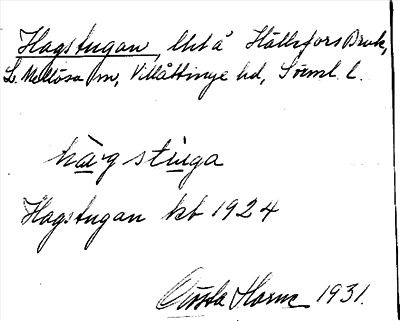 Hagstugan, lht å Hälleforsbruk,
L. Mellösa sn, Villåttinge hd, Sörml. l.
hàg stùga
Hagstugan kb 1924
Gösta Horm 1931.